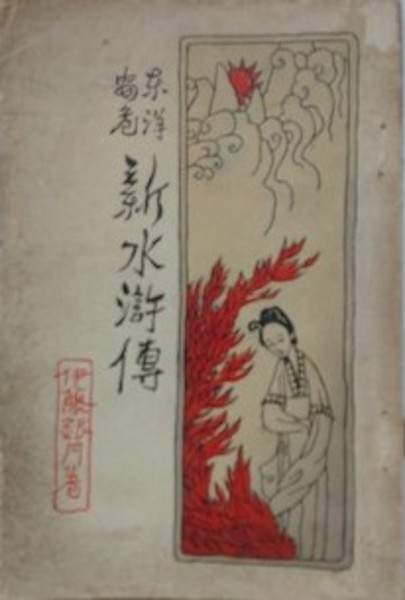 東洋
安危
新水滸傳
伊藤銀月著